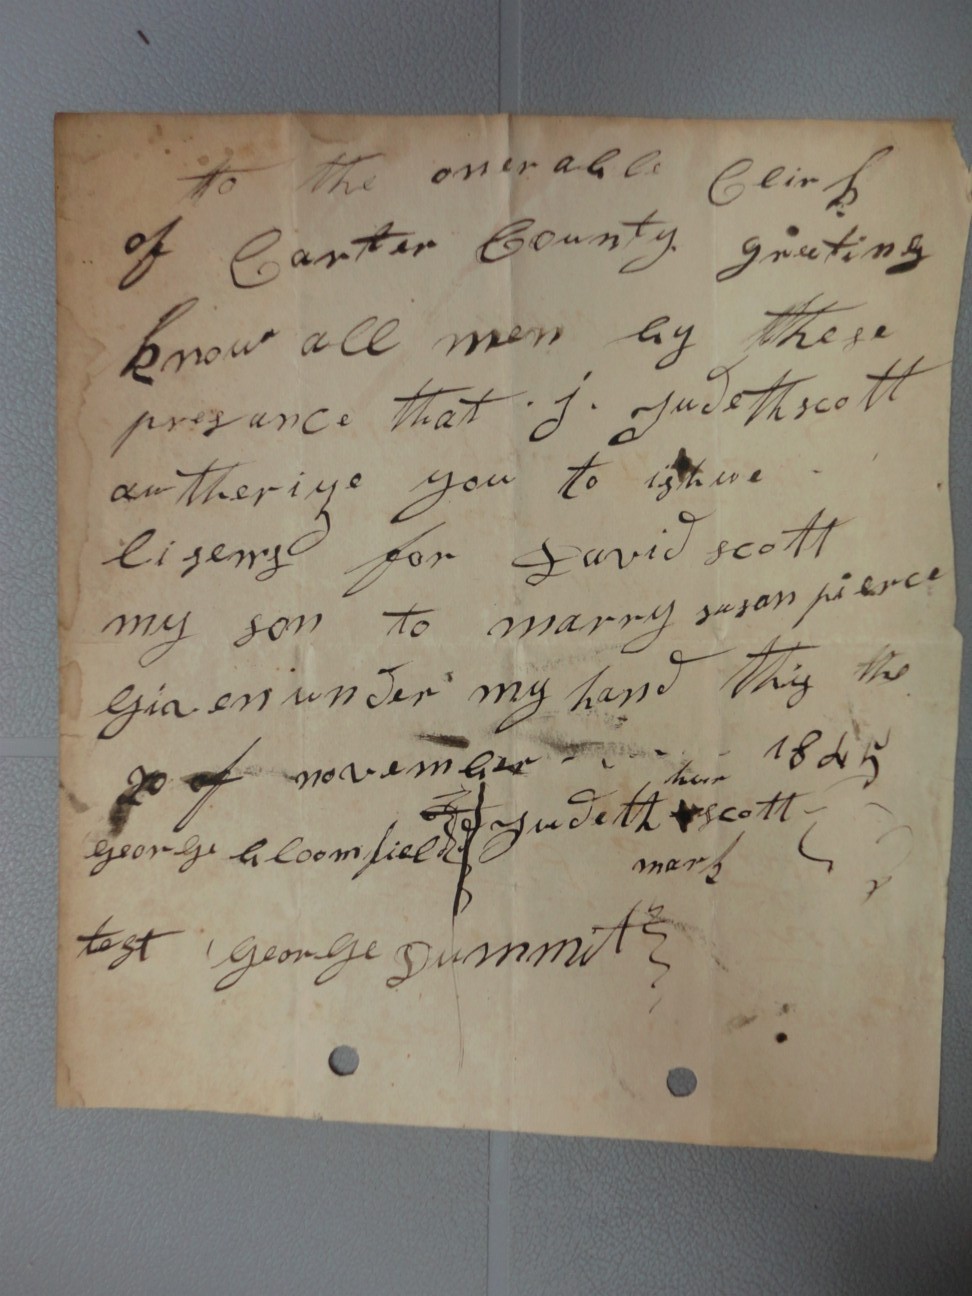 to the onerable Clirk
of Carter County greeting
know all men by these
presance that . j . judeth scott
autherize you to ishue
lisens for David scott
my son to marry susan pierce
given under my hand this the
20 of november - - - - 1845
her
george bloomfield judeth x scott
mark
test george Summit